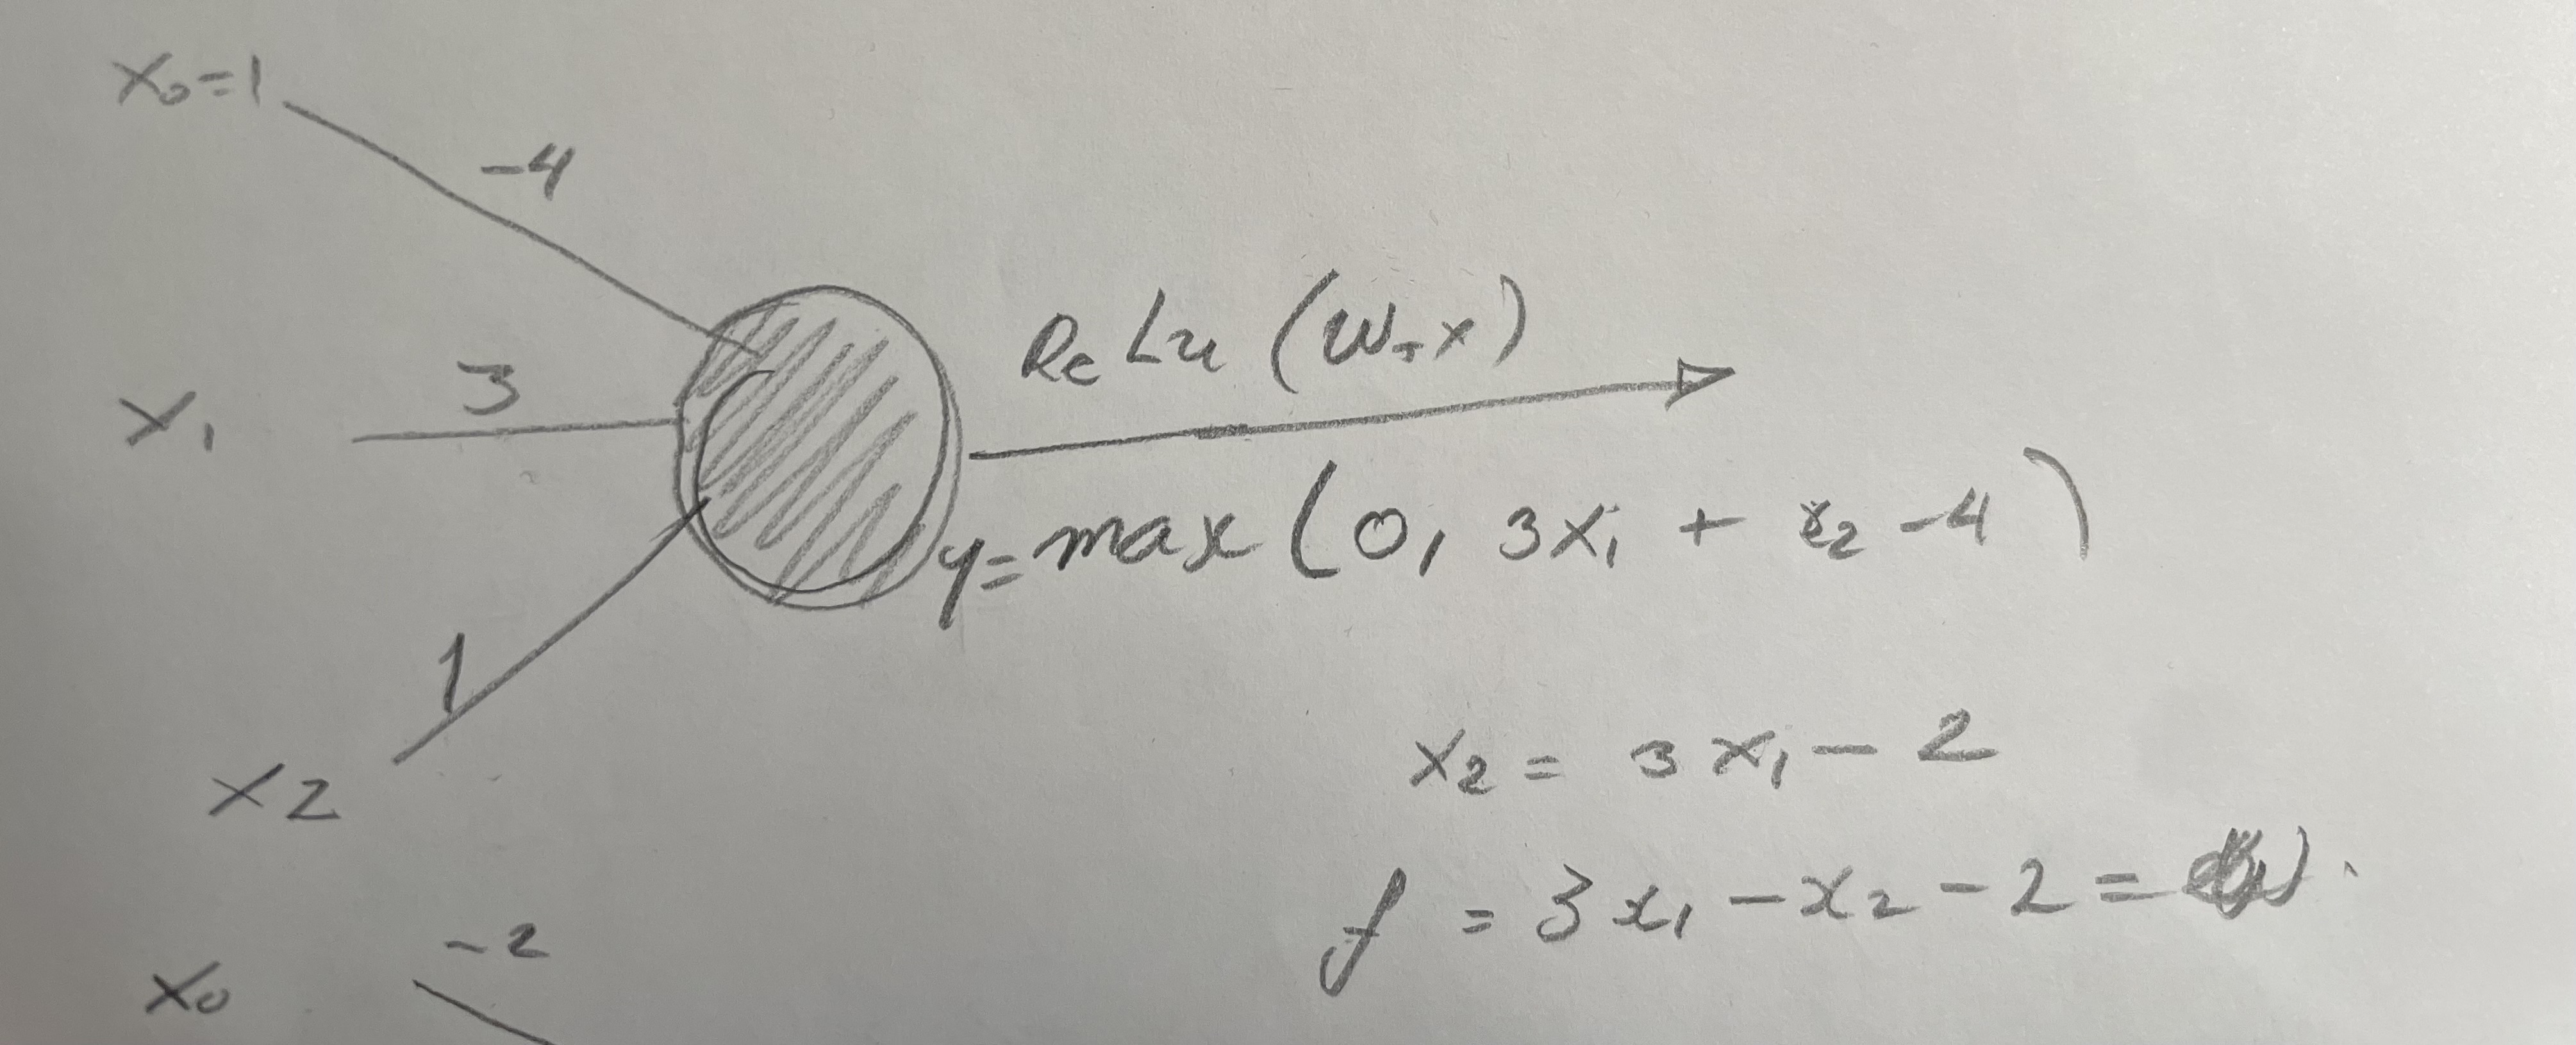 x₀=1
-4
3
x₁
ReLu (W_T x)
y= max (0, 3x₁ + x₂ -4)
1
x₂
x₂ = 3x₁ - 2
f = 3x₁ - x₂ - 2 =
-2
x₀